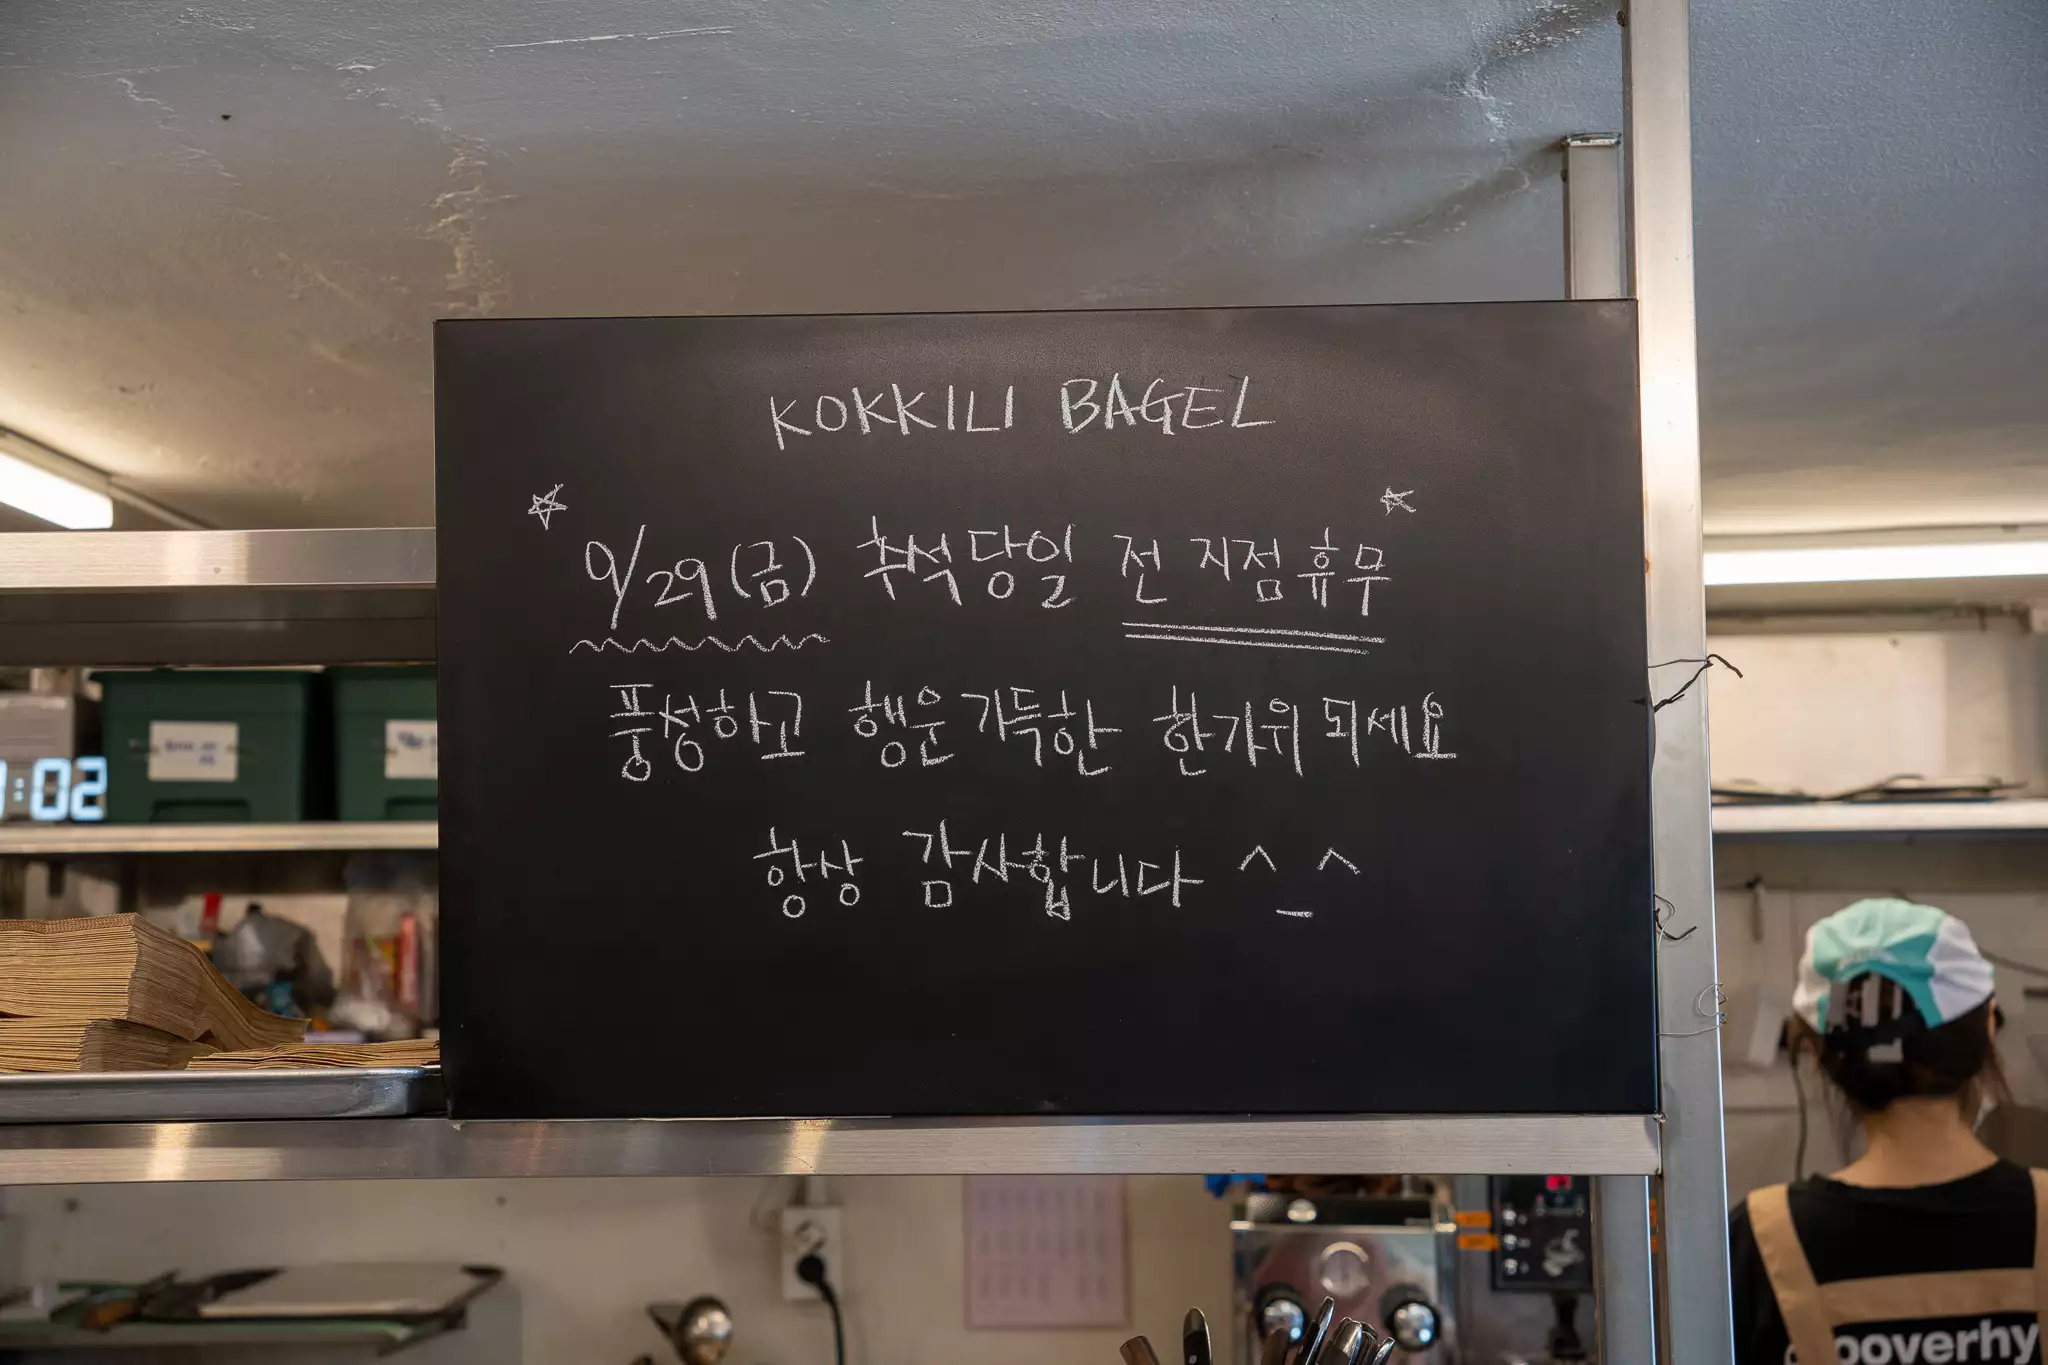 KOKKILI BAGEL
9/29(금) 추석당일 전 지점 휴무
풍성하고 행운가득한 한가위 되세요
항상 감사합니다 ^_^
:02
overhy